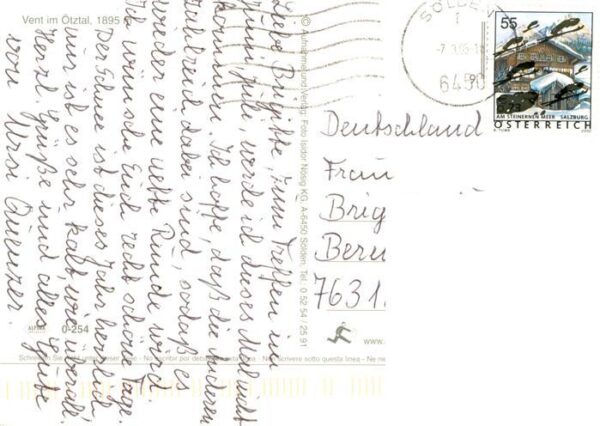 Vent im Ötztal, 1895 m
Liebe Brigitte, zum Treffen im
Juni/Juli werde ich dieses Mal nicht
kommen. Ich hoffe, daß die anderen
zahlreich dabei sind, sodaß es
wieder eine nette Runde wird.
Ich wünsche Euch recht schöne Tage.
Der Schnee ist dieses Jahr herrlich
nur ist es sehr kalt, wie überall.
Herzl. Grüße und alles Gute
von Ursi
© Aufnahme und Verlag: Foto Isidor Nösig KG, A-6450 Sölden, Tel. 0 52 54 / 25 91
ALPINA
0-254
SÖLDEN
1
6450
55
AM STEINERNEN MEER SALZBURG
ÖSTERREICH
Deutschland
Frau
Brig
Bern
7631
www.
Schreiben Sie nicht unter dieser Linie - No escribir por debajo de esta línea - Non scrivere sotto questa linea - Ne